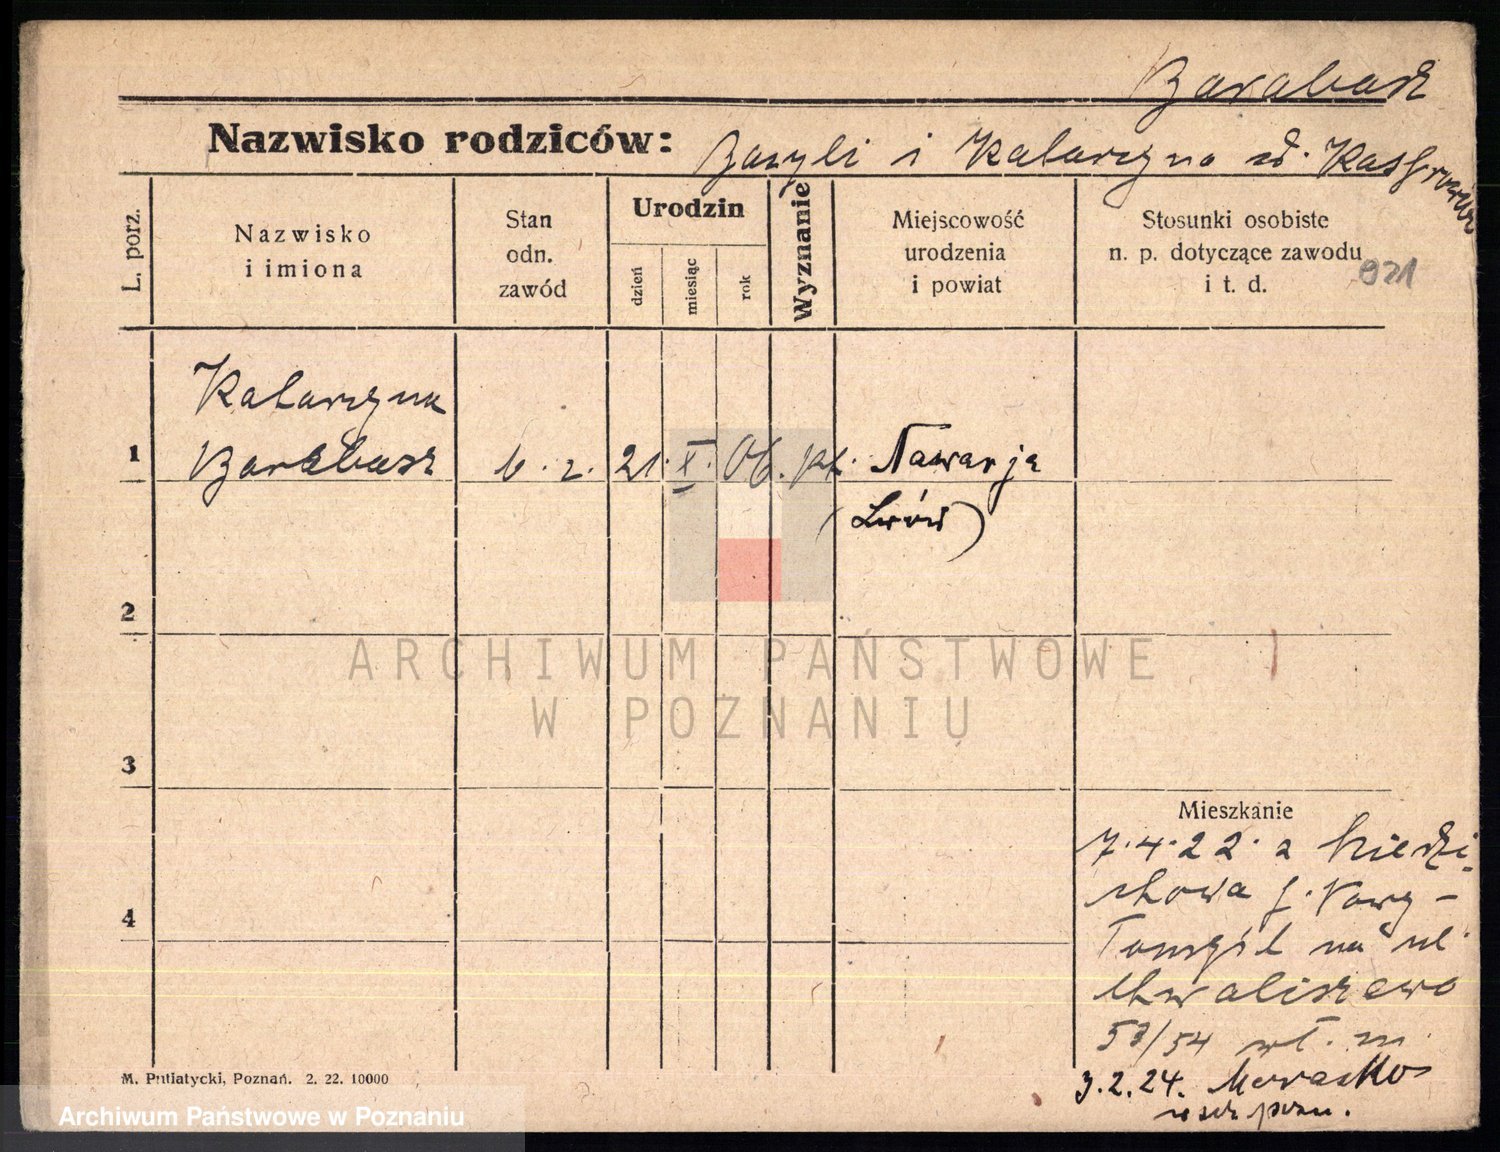 Barabasz
Nazwisko rodziców: Bazyli i Katarzyna
L. porz.
Nazwisko
i imiona
Stan
odn.
zawód
Urodzin
dzień
miesiąc
rok
Wyznanie
Miejscowość
urodzenia
i powiat
Stosunki osobiste
n. p. dotyczące zawodu
i t. d.
921
Katarzyna
1 Barabasz b. z. 21. X. 06. rz. Nawarja
(Lwów)
2
ARCHIWUM PAŃSTWOWE
W POZNANIU
3
Mieszkanie
7.4.22. z
Nowy-
4
Tomyśl na ul
Chwaliszewo
53/54 wł. m.
3.2.24. Morasko
M. Putiatycki, Poznań. 2. 22. 10000
Archiwum Państwowe w Poznaniu